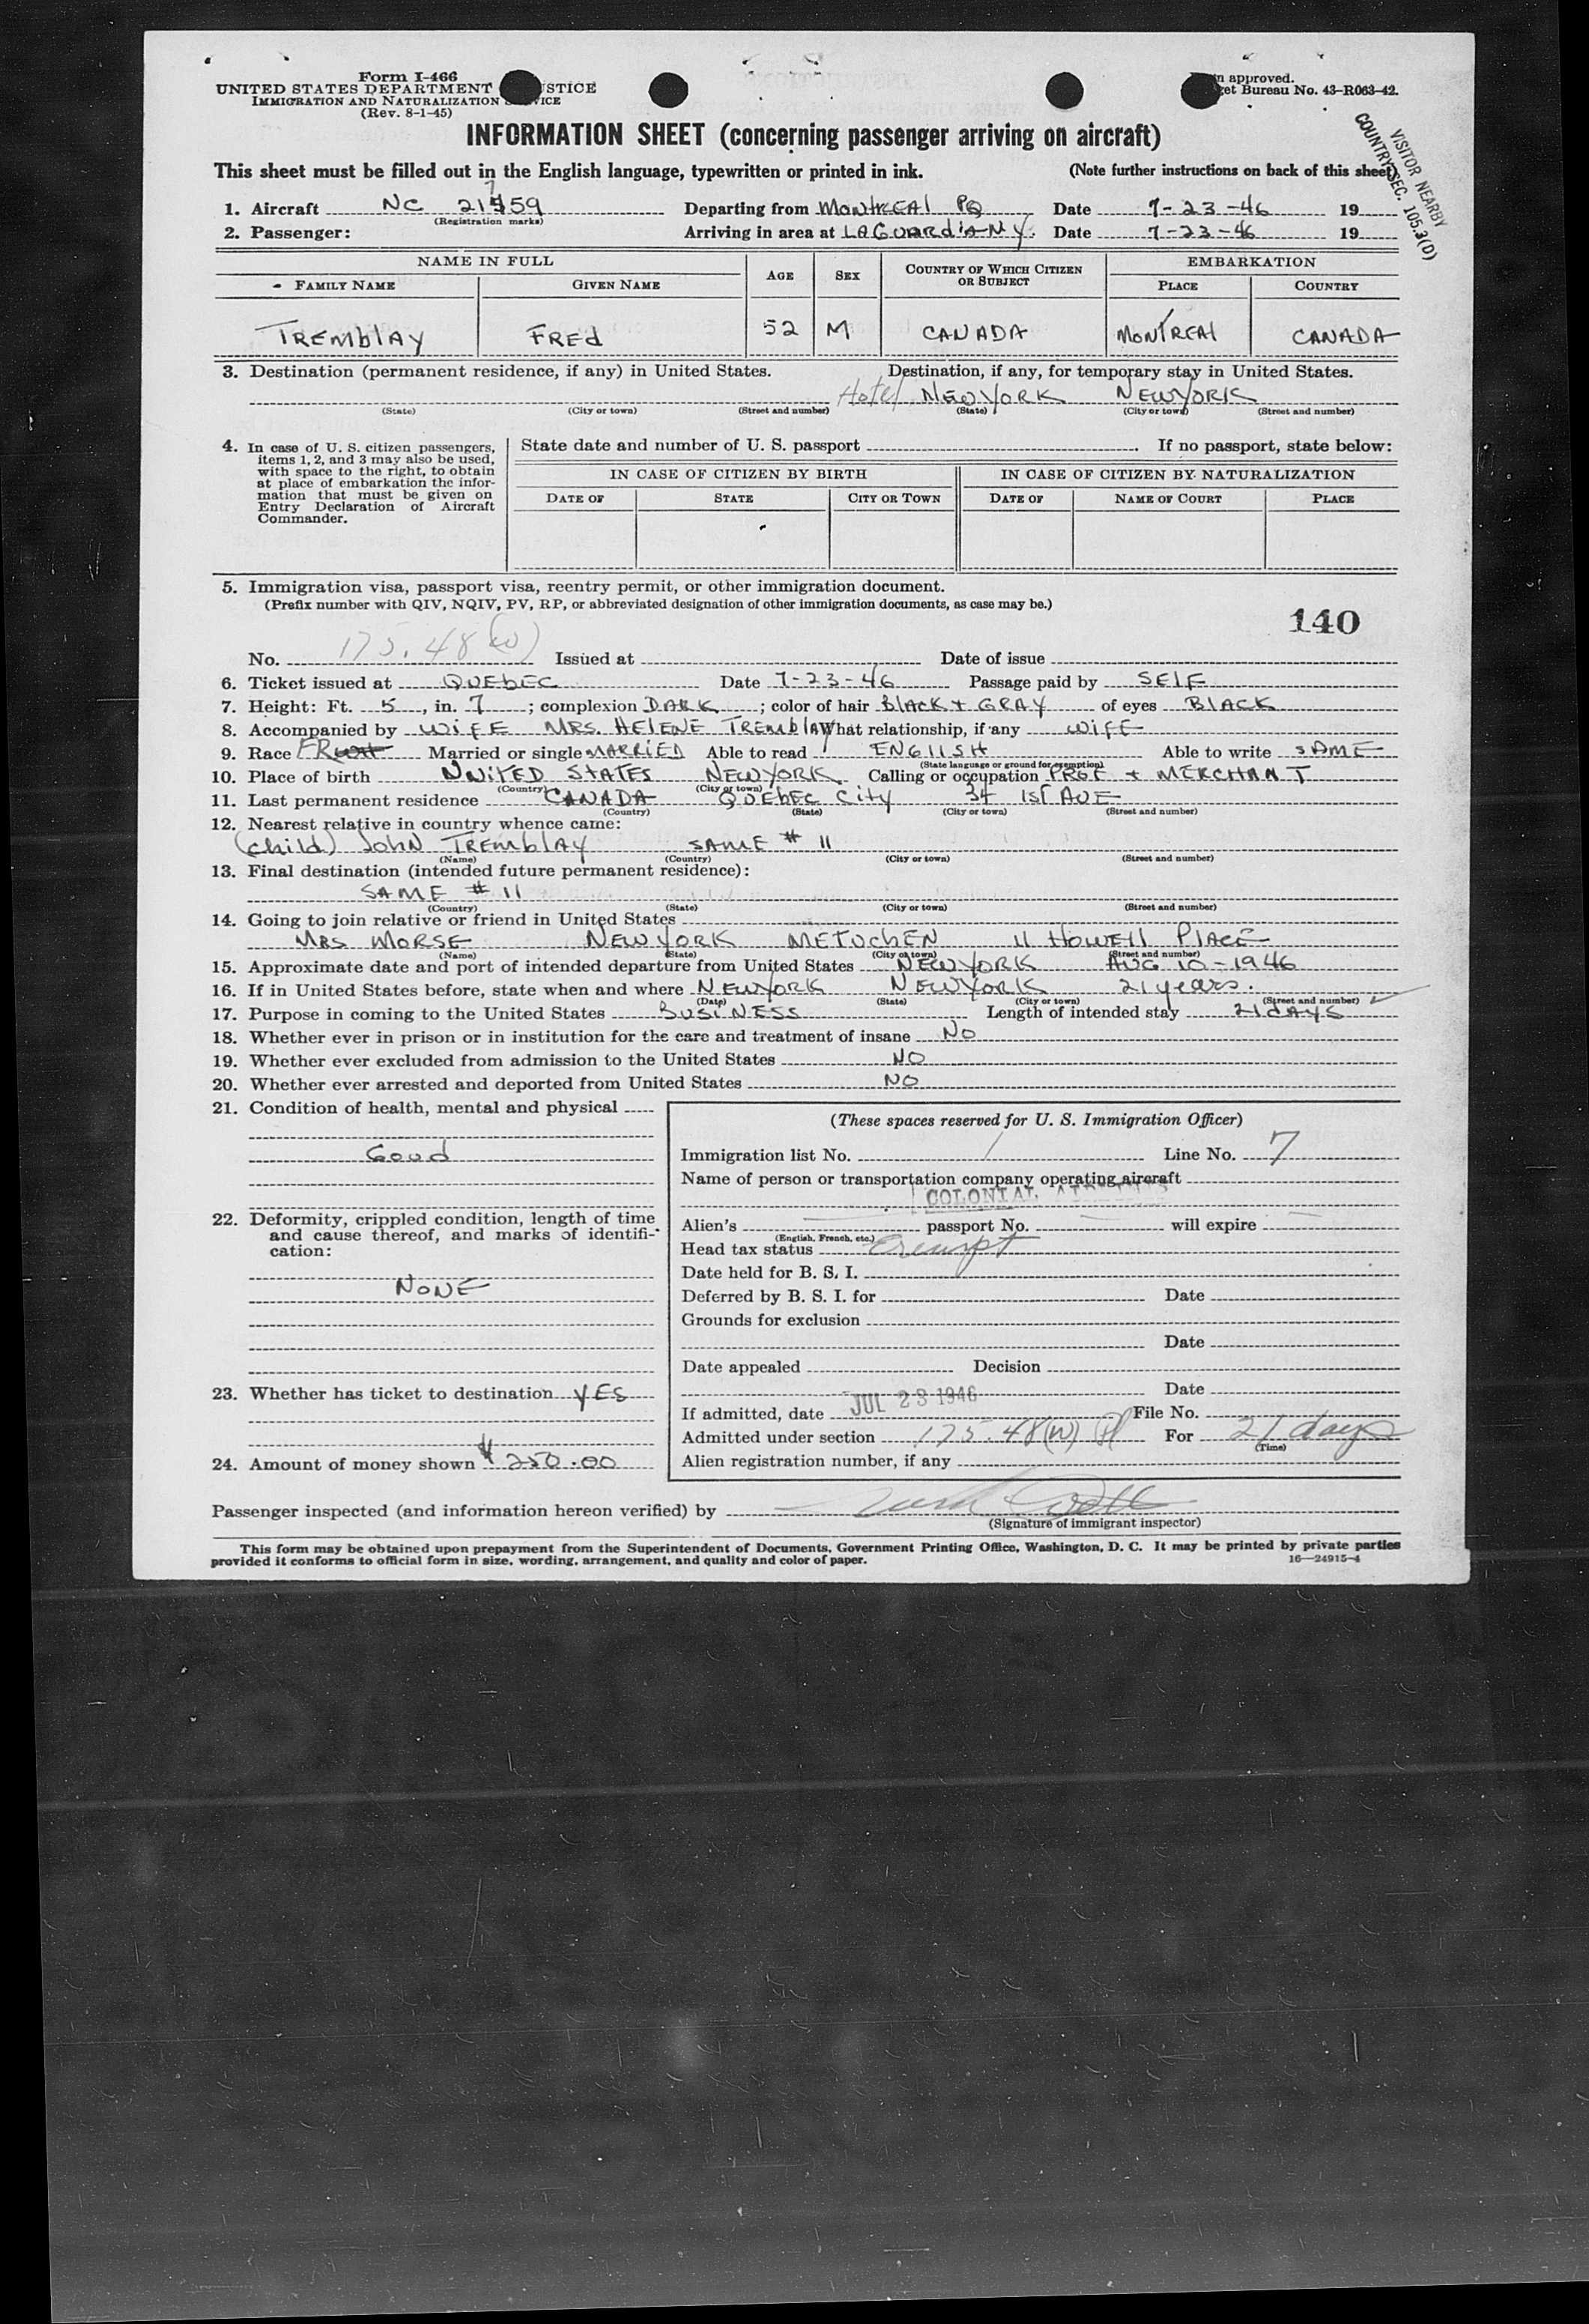 Form I-466
UNITED STATES DEPARTMENT STICE
IMMIGRATION AND NATURALIZATION VICE
(Rev. 8-1-45)
n approved.
get Bureau No. 43-R063-42.
VISITOR NEARBY
COUNTRY SEC. 105.3(D)
INFORMATION SHEET (concerning passenger arriving on aircraft)
This sheet must be filled out in the English language, typewritten or printed in ink. (Note further instructions on back of this sheet)
1. Aircraft NC 21759 Departing from MONTREAL PQ Date 7-23-46 19
(Registration marks)
2. Passenger: Arriving in area at LAGUARDIA NY. Date 7-23-46 19
NAME IN FULL AGE SEX COUNTRY OF WHICH CITIZEN OR SUBJECT EMBARKATION
FAMILY NAME GIVEN NAME PLACE COUNTRY
TREMblAY FREd 52 M CANADA MONTREAl CANADA
3. Destination (permanent residence, if any) in United States. Destination, if any, for temporary stay in United States.
Hotel NEWYORK NEWYORK
(State) (City or town) (Street and number) (State) (City or town) (Street and number)
4. In case of U. S. citizen passengers, items 1, 2, and 3 may also be used, with space to the right, to obtain at place of embarkation the information that must be given on Entry Declaration of Aircraft Commander.
State date and number of U. S. passport If no passport, state below:
IN CASE OF CITIZEN BY BIRTH IN CASE OF CITIZEN BY NATURALIZATION
DATE OF STATE CITY OR TOWN DATE OF NAME OF COURT PLACE
5. Immigration visa, passport visa, reentry permit, or other immigration document.
(Prefix number with QIV, NQIV, PV, RP, or abbreviated designation of other immigration documents, as case may be.)
140
No. 175.48(w) Issued at Date of issue
6. Ticket issued at QUEbEC Date 7-23-46 Passage paid by SElF
7. Height: Ft. 5, in. 7; complexion DARK; color of hair BlACK + GRAY of eyes BlACK
8. Accompanied by WiFE MRS. HElENE TREMblAY What relationship, if any WIFE
9. Race FR Married or single MARRIED Able to read ENGlISH Able to write SAME
(State language or ground for exemption)
10. Place of birth UNITED STATES NEWYORK Calling or occupation PROF + MERCHANT
(Country) (City or town)
11. Last permanent residence CANADA QUEbEC City 34 1st AUE
(Country) (State) (City or town) (Street and number)
12. Nearest relative in country whence came:
(child) JohN TREMblAY SAME # 11
(Name) (Country) (City or town) (Street and number)
13. Final destination (intended future permanent residence):
SAME # 11
(Country) (State) (City or town) (Street and number)
14. Going to join relative or friend in United States
MRS MORSE NEWYORK METUchEN 11 HOWEll PlACE
(Name) (State) (City or town) (Street and number)
15. Approximate date and port of intended departure from United States NEWYORK AUG 10-1946
16. If in United States before, state when and where NEWYORK NEWYORK 21 years.
(Date) (State) (City or town) (Street and number)
17. Purpose in coming to the United States BUSINESS Length of intended stay 21 dAYS
18. Whether ever in prison or in institution for the care and treatment of insane NO
19. Whether ever excluded from admission to the United States NO
20. Whether ever arrested and deported from United States NO
21. Condition of health, mental and physical
Good
22. Deformity, crippled condition, length of time and cause thereof, and marks of identification:
NONE
23. Whether has ticket to destination YES
24. Amount of money shown $250.00
(These spaces reserved for U. S. Immigration Officer)
Immigration list No. 1 Line No. 7
Name of person or transportation company operating aircraft
COLONIAL AIRLINES
Alien's passport No. will expire
(English, French, etc.)
Head tax status Exempt
Date held for B. S. I.
Deferred by B. S. I. for Date
Grounds for exclusion
Date
Date appealed Decision
Date
If admitted, date JUL 23 1946 File No.
Admitted under section 175.48(W) For 21 days
(Time)
Alien registration number, if any
Passenger inspected (and information hereon verified) by
(Signature of immigrant inspector)
This form may be obtained upon prepayment from the Superintendent of Documents, Government Printing Office, Washington, D. C. It may be printed by private parties
provided it conforms to official form in size, wording, arrangement, and quality and color of paper. 16—24915-4